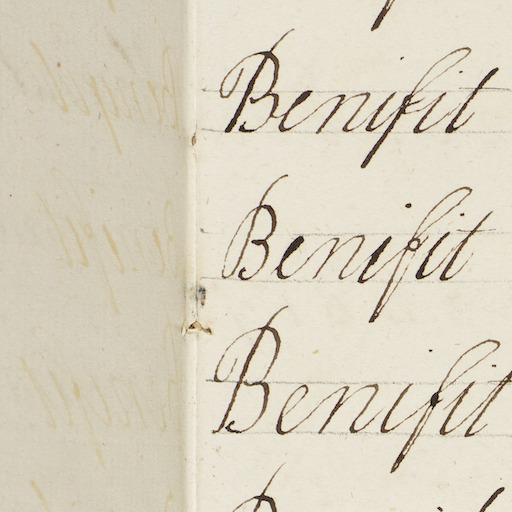 Benifit
Benifit
Benifit